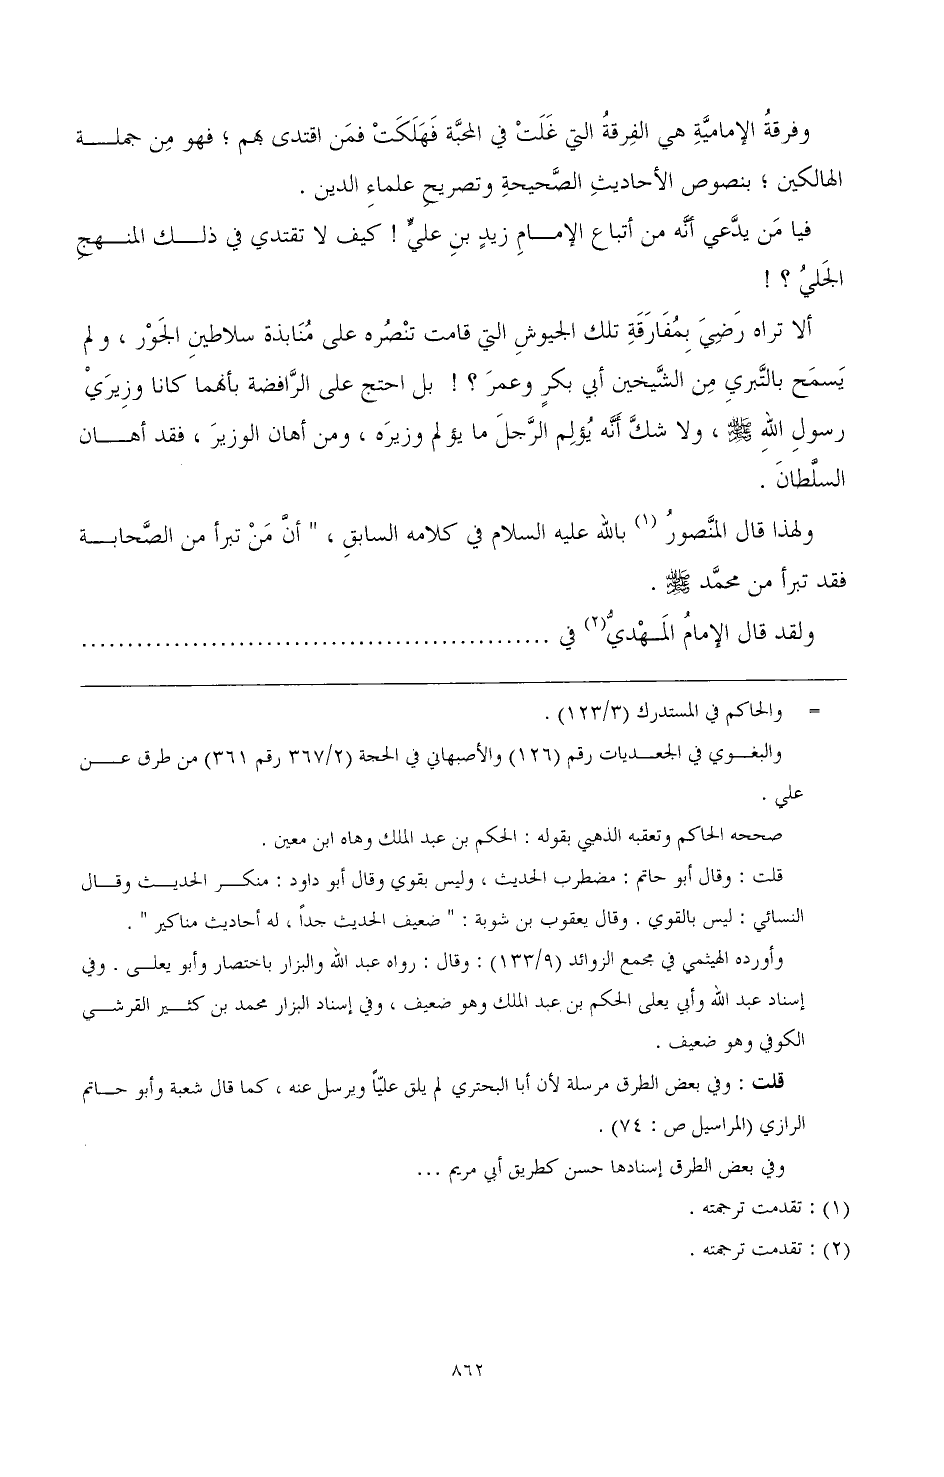 وفرقةُ الإماميَّةِ هي الفِرقةُ التي غَلَتْ في المحبَّة فَهَلَكَتْ فمَن اقتدى بهم ؛ فهو مِن جملة
الهالكين ؛ بنصوص الأحاديثِ الصَّحيحةِ وتصريحِ علماءِ الدين .
فيا مَن يدَّعي أنَّه من أتباع الإمامِ زيدِ بنِ عليٍّ ! كيف لا تقتدي في ذلك المنهجِ
الجَليُ ؟ !
ألا تراه رَضِيَ بِمُفَارَقَةِ تلك الجيوشِ التي قامت تنْصُره على مُنَابذة سلاطينِ الجَوْر ، ولم
يَسمَح بالتَّبري مِن الشَّيخين أبي بكرٍ وعمرَ ؟ ! بل احتج على الرَّافضة بأنهما كانا وزيرَيْ
رسولِ اللهِ ﷺ ، ولا شكَّ أنَّه يُؤلِم الرَّجلَ ما يؤلم وزيرَه ، ومن أهان الوزيرَ ، فقد أهان
السلَّطانَ .
ولهذا قال المنَّصورُ (١) بالله عليه السلام في كلامه السابقِ ، " أنَّ مَنْ تبرأ من الصَّحابة
فقد تبرأ من محمَّد ﷺ .
ولقد قال الإمامُ المَهْديُّ(٢) في ....................................................
= والحاكم في المستدرك (١٢٣/٣) .
والبغوي في الجعديات رقم (١٢٦) والأصبهاني في الحجة (٣٦٧/٢ رقم ٣٦١) من طرق عن
علي .
صححه الحاكم وتعقبه الذهبي بقوله : الحكم بن عبد الملك وهاه ابن معين .
قلت : وقال أبو حاتم : مضطرب الحديث ، وليس بقوي وقال أبو داود : منكر الحديث وقال
النسائي : ليس بالقوي . وقال يعقوب بن شوبة : " ضعيف الحديث جداً ، له أحاديث مناكير " .
وأورده الهيثمي في مجمع الزوائد (١٣٣/٩) : وقال : رواه عبد الله والبزار باختصار وأبو يعلى . وفي
إسناد عبد الله وأبي يعلى الحكم بن عبد الملك وهو ضعيف ، وفي إسناد البزار محمد بن كثير القرشي
الكوفي وهو ضعيف .
قلت : وفي بعض الطرق مرسلة لأن أبا البحتري لم يلق عليّاً ويرسل عنه ، كما قال شعبة وأبو حاتم
الرازي (المراسيل ص : ٧٤) .
وفي بعض الطرق إسنادها حسن كطريق أبي مريم ...
(١) : تقدمت ترجمته .
(٢) : تقدمت ترجمته .
٨٦٢